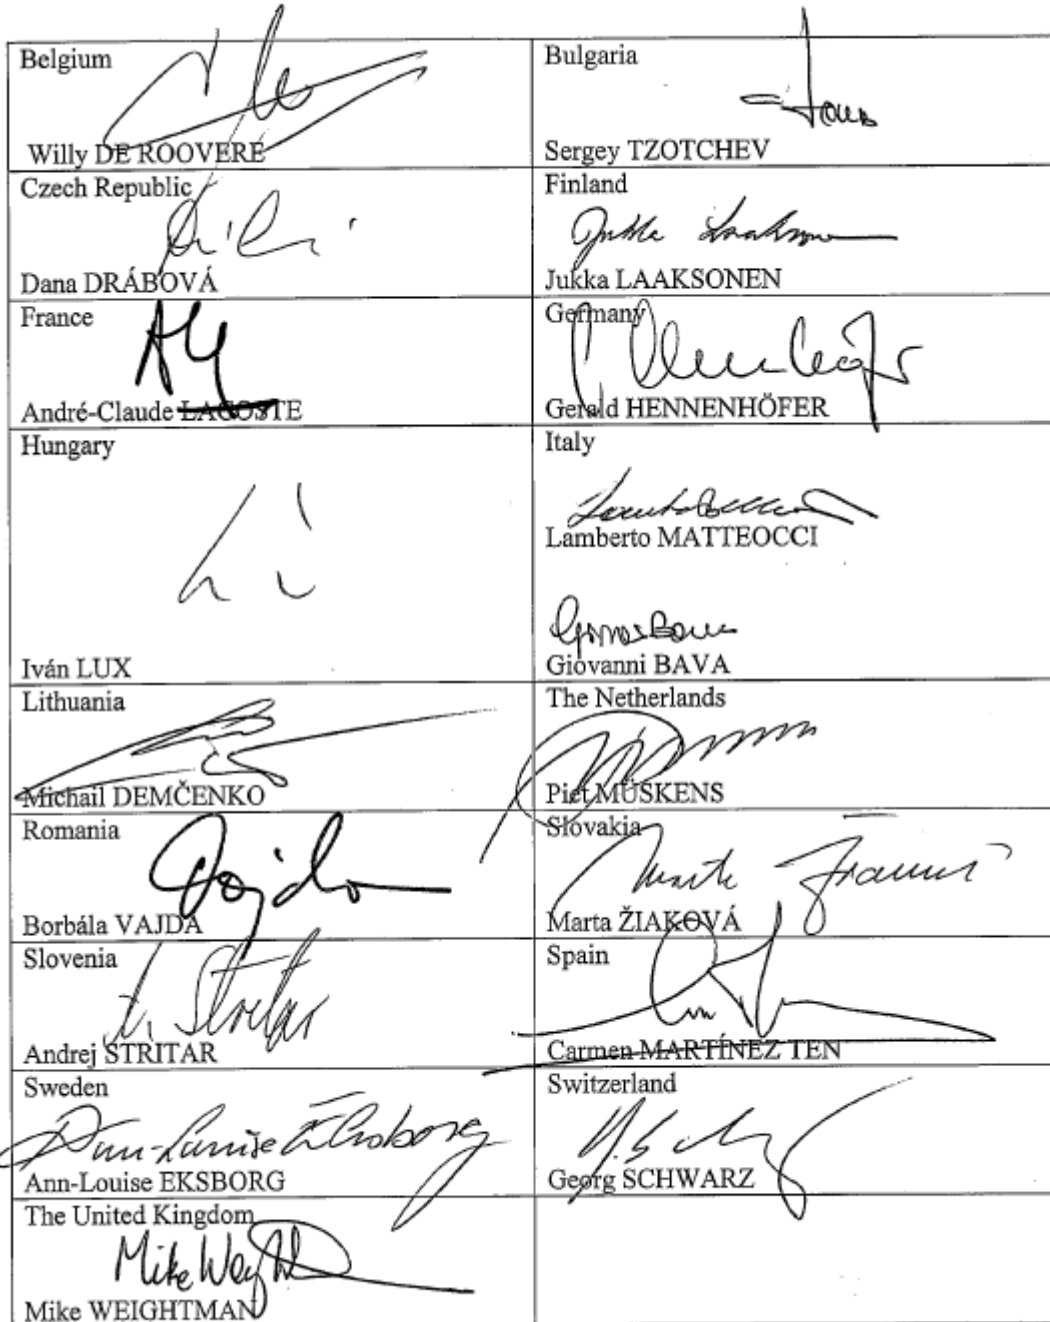 Belgium
Willy DE ROOVERE
Bulgaria
Sergey TZOTCHEV
Czech Republic
Dana DRÁBOVÁ
Finland
Jukka Laaksonen
Jukka LAAKSONEN
France
André-Claude LACOSTE
Germany
Gerald HENNENHÖFER
Hungary
Iván LUX
Italy
Lamberto MATTEOCCI
Giovanni BAVA
Lithuania
Michail DEMČENKO
The Netherlands
Piet MÜSKENS
Romania
Vajda
Borbála VAJDA
Slovakia
Marta ŽIAKOVÁ
Slovenia
A. Stritar
Andrej STRITAR
Spain
Carmen MARTÍNEZ TEN
Sweden
Ann-Louise Eksborg
Ann-Louise EKSBORG
Switzerland
Georg SCHWARZ
The United Kingdom
Mike Weightman
Mike WEIGHTMAN